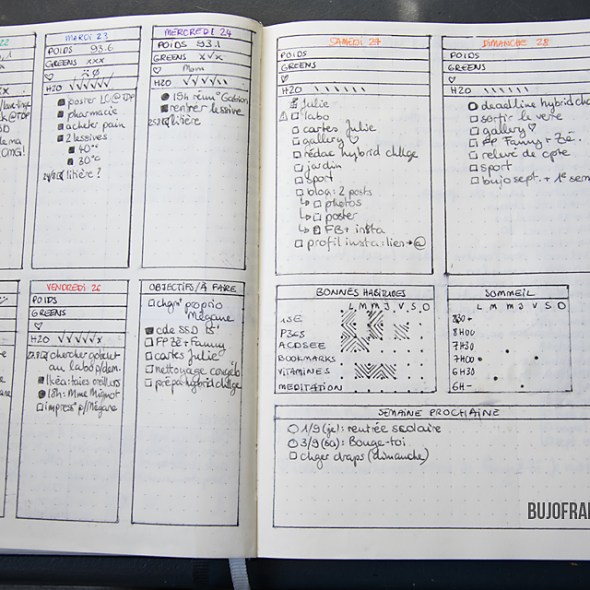 MARDI 23
POIDS 93.6
GREENS xxx
H2O
poster LC@RDP
pharmacie
acheter pain
2 lessives
40°
30°
litière?
MERCREDI 24
POIDS 93.1
GREENS x√x
Mam
H2O
19h réun°
rentrer lessive
litière
VENDREDI 26
POIDS
GREENS
H2O
chercher gobelet
au labo p/dem.
Ikéa: taies oreillers
18h: Mme Mignot
impress° p/Mégane
OBJECTIFS/À FAIRE
chgr proprio
Mégane
cde SSD
FP Zé + Fanny
cartes Julie
nettoyage congélo
prépa hybrid chllge
SAMEDI 27
POIDS
GREENS
H2O
Julie
labo
cartes Julie
gallery
rédac hybrid chllge
jardin
sport
blog: 2 posts
photos
poster
FB + insta
profil insta: lien → @
DIMANCHE 28
POIDS
GREENS
H2O
deadline hybrid
sortir le verre
gallery
FP Fanny + Zé.
relevé de cpte
sport
bujo sept. + 1e
BONNES HABITUDES
L M M J V S D
P365
BOOKMARKS
VITAMINES
MEDITATION
SOMMEIL
L M M J V S D
8H30+
8H00
7H30
7H00
6H30
6H-
SEMAINE PROCHAINE
1/9 (je): rentrée scolaire
3/9 (sa): Bouge-toi
chger draps (dimanche)
BUJOFRA